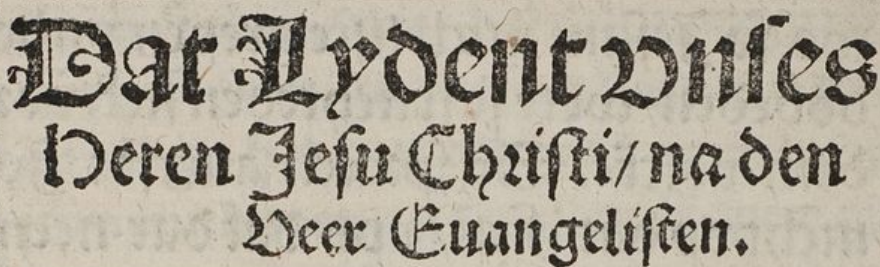 Dat Lydent vnſes
Heren Jeſu Chriſti/ na den
Veer Euangeliſten.